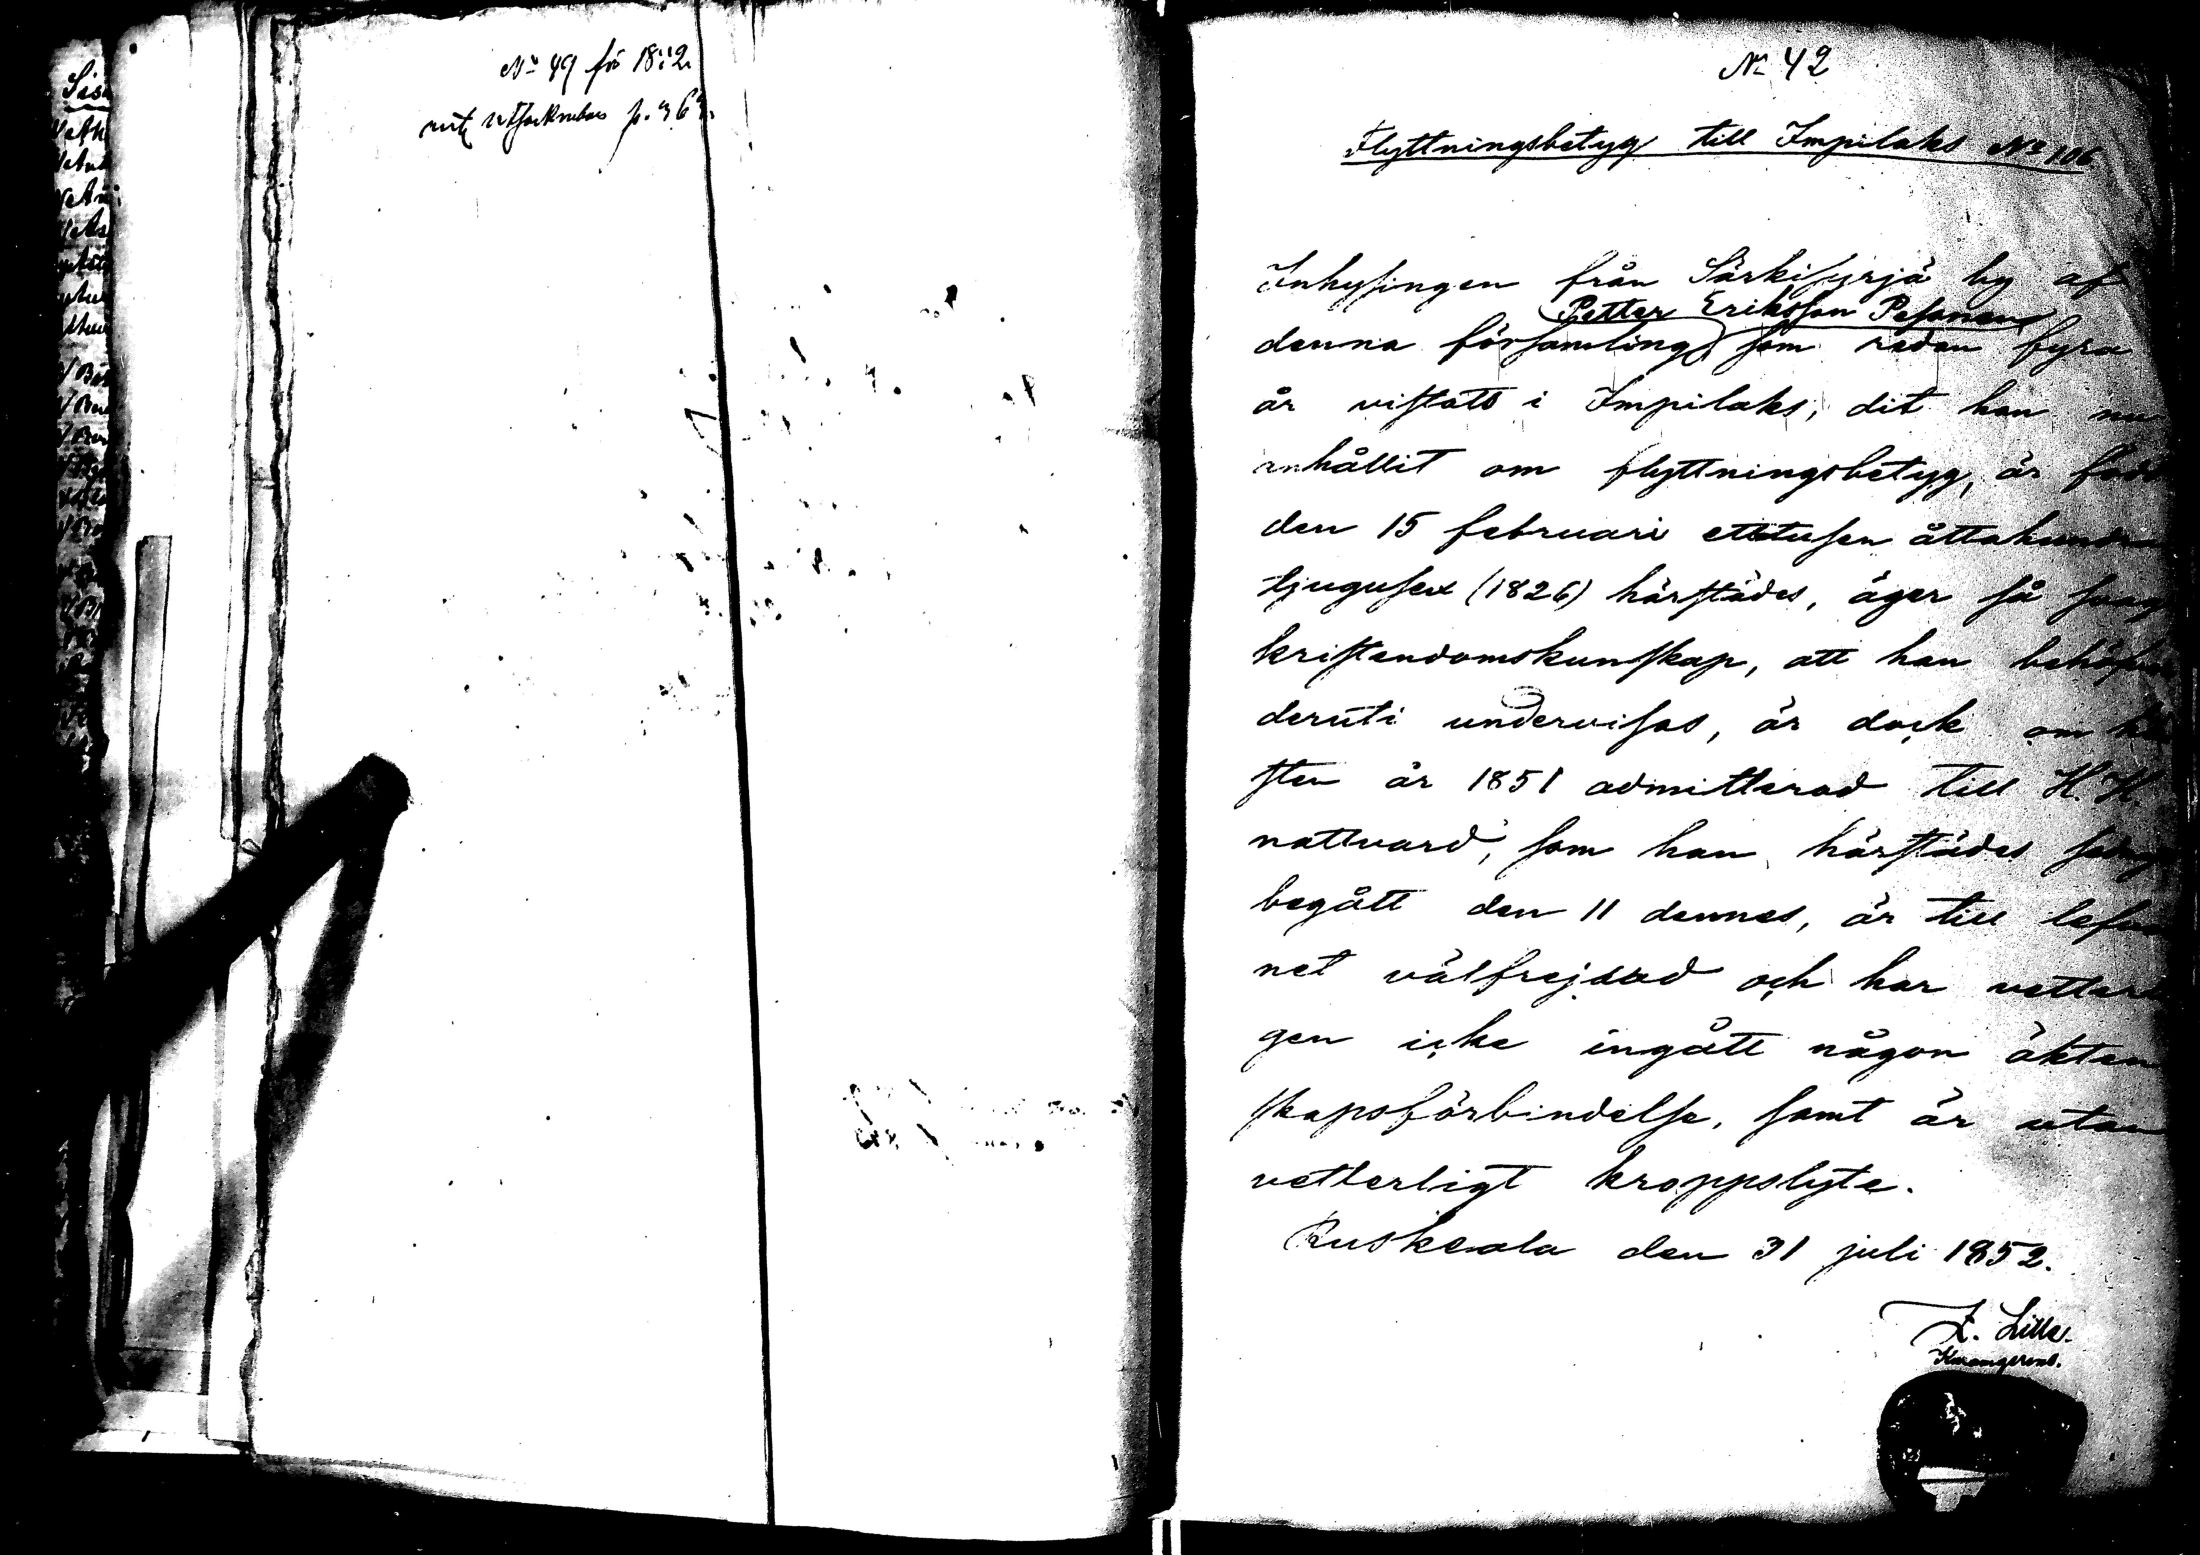 No 49 för 1852
No 42
Flyttningsbetyg till Impilaks No 106
Inhysingen från Särkisyrjä by af
Petter Eriksson Pesonen
denna församling som redan fyra
år vistats i Impilaks, dit han nu
anhållit om flyttningsbetyg, är född
den 15 februari ettusen åttahundra
tjugusex (1826) härstädes, äger så svag
kristendomskunskap, att han behöfver
deruti undervisas, är dock om hö
sten år 1851 admitterad till H. H.
nattvard, som han härstädes sedan
begått den 11 dennes, är till lefver
net välfrejdad och har vetterli
gen icke ingått någon äkten
skapsförbindelse, samt är utan
vetterligt kroppslyte.
Ruskeala den 31 juli 1852.